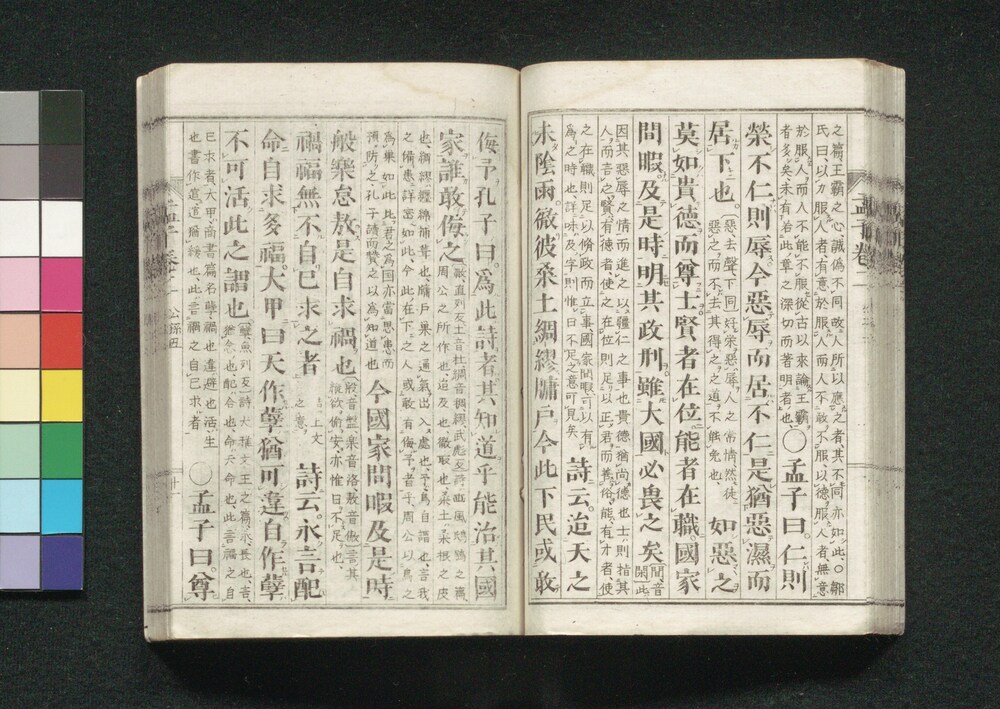 之篇王霸之心誠僞不同故人所以應之者其不同亦如此○鄒
氏曰以力服人者有意於服人而人不敢不服以德服人者無意
於服人而人不能不服從古以來論王霸
者多矣未有若此章之深切而著明者也
○孟子曰仁則
榮不仁則辱今惡辱而居不仁是猶惡濕而
居下也
惡去聲下同○好榮惡辱人之常情然徒
惡之而不去其得之之道不能免也
如惡之
莫如貴德而尊士賢者在位能者在職國家
間暇及是時明其政刑雖大國必畏之矣
間音
閑○此
因其惡辱之情而進之以彊仁之事也貴德猶尚德也士則指其
人而言之賢有德者使之在位則足以正君而善俗能有才者使
之在職則足以修政而立事國家間暇可以有
爲之時也詳味及字則惟日不足之意可見矣
詩云迨天之
未陰雨徹彼桑土綢繆牖戶今此下民或敢
孟子卷二
侮予孔子曰爲此詩者其知道乎能治其國
家誰敢侮之
徹直列反土音杜綢音稠繆武彪反○詩豳風鴟鴞之篇
周公之所作也迨及也徹取也桑土桑根之皮
也綢繆纏綿補葺也牖戶巢之通氣出入處也予鳥自謂也言我
之備患詳密如此今此在下之人或敢有侮予者乎周公以鳥之
爲巢如此比君之爲國亦當思患而
預防之孔子讀而贊之以爲知道也
今國家間暇及是時
般樂怠敖是自求禍也
般音盤樂音洛敖音傲○言其
縱欲偷安亦惟日不足也
禍福無不自己求之者
結上文
之意
詩云永言配
命自求多福大甲曰天作孽猶可違自作孽
不可活此之謂也
孽魚列反○詩大雅文王之篇永長也言
猶念也配合也命天命也此言福之自
己求者大甲商書篇名孽禍也違避也活生
也書作逭逭猶緩也此言禍之自己求者
○孟子曰尊
孟子卷二
公孫丑